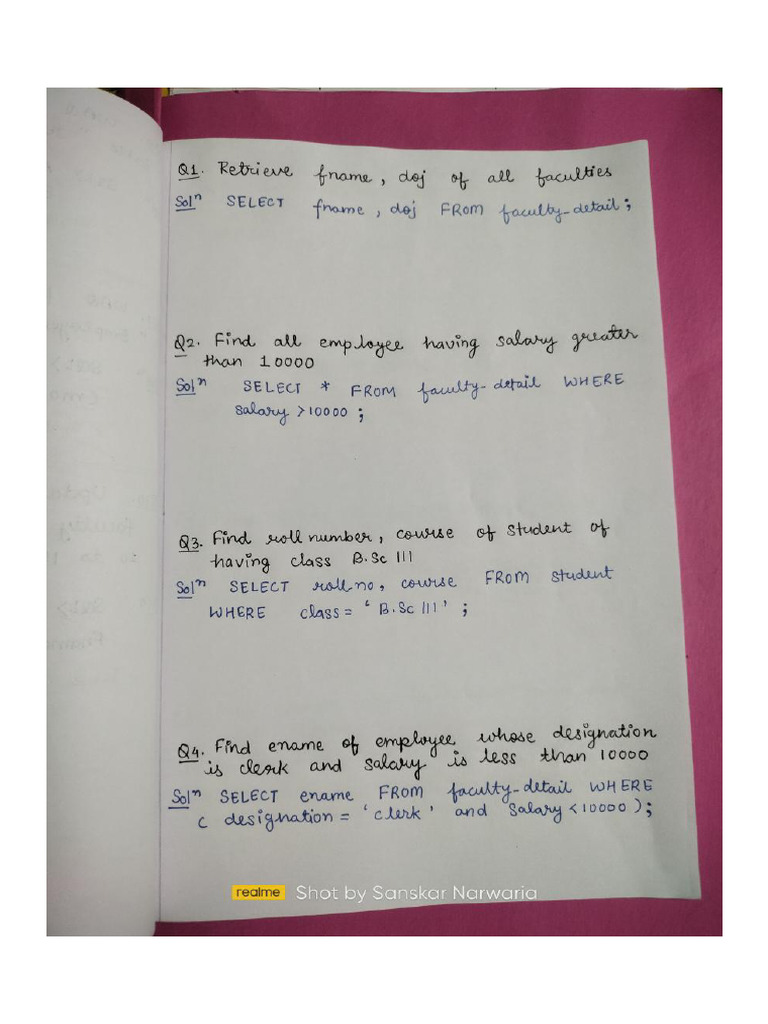 Q1. Retrieve fname, doj of all faculties
Solⁿ SELECT fname, doj FROM faculty-detail;
Q2. Find all employee having salary greater
than 10000
Solⁿ SELECT * FROM faculty-detail WHERE
salary >10000;
Q3. Find roll number, course of student of
having class B.Sc III
Solⁿ SELECT roll no, course FROM student
WHERE class = ‘B.Sc III’;
Q4. Find ename of employee whose designation
is clerk and salary is less than 10000
Solⁿ SELECT ename FROM faculty-detail WHERE
( designation = ‘clerk’ and salary <10000);
realme Shot by Sanskar Narwaria